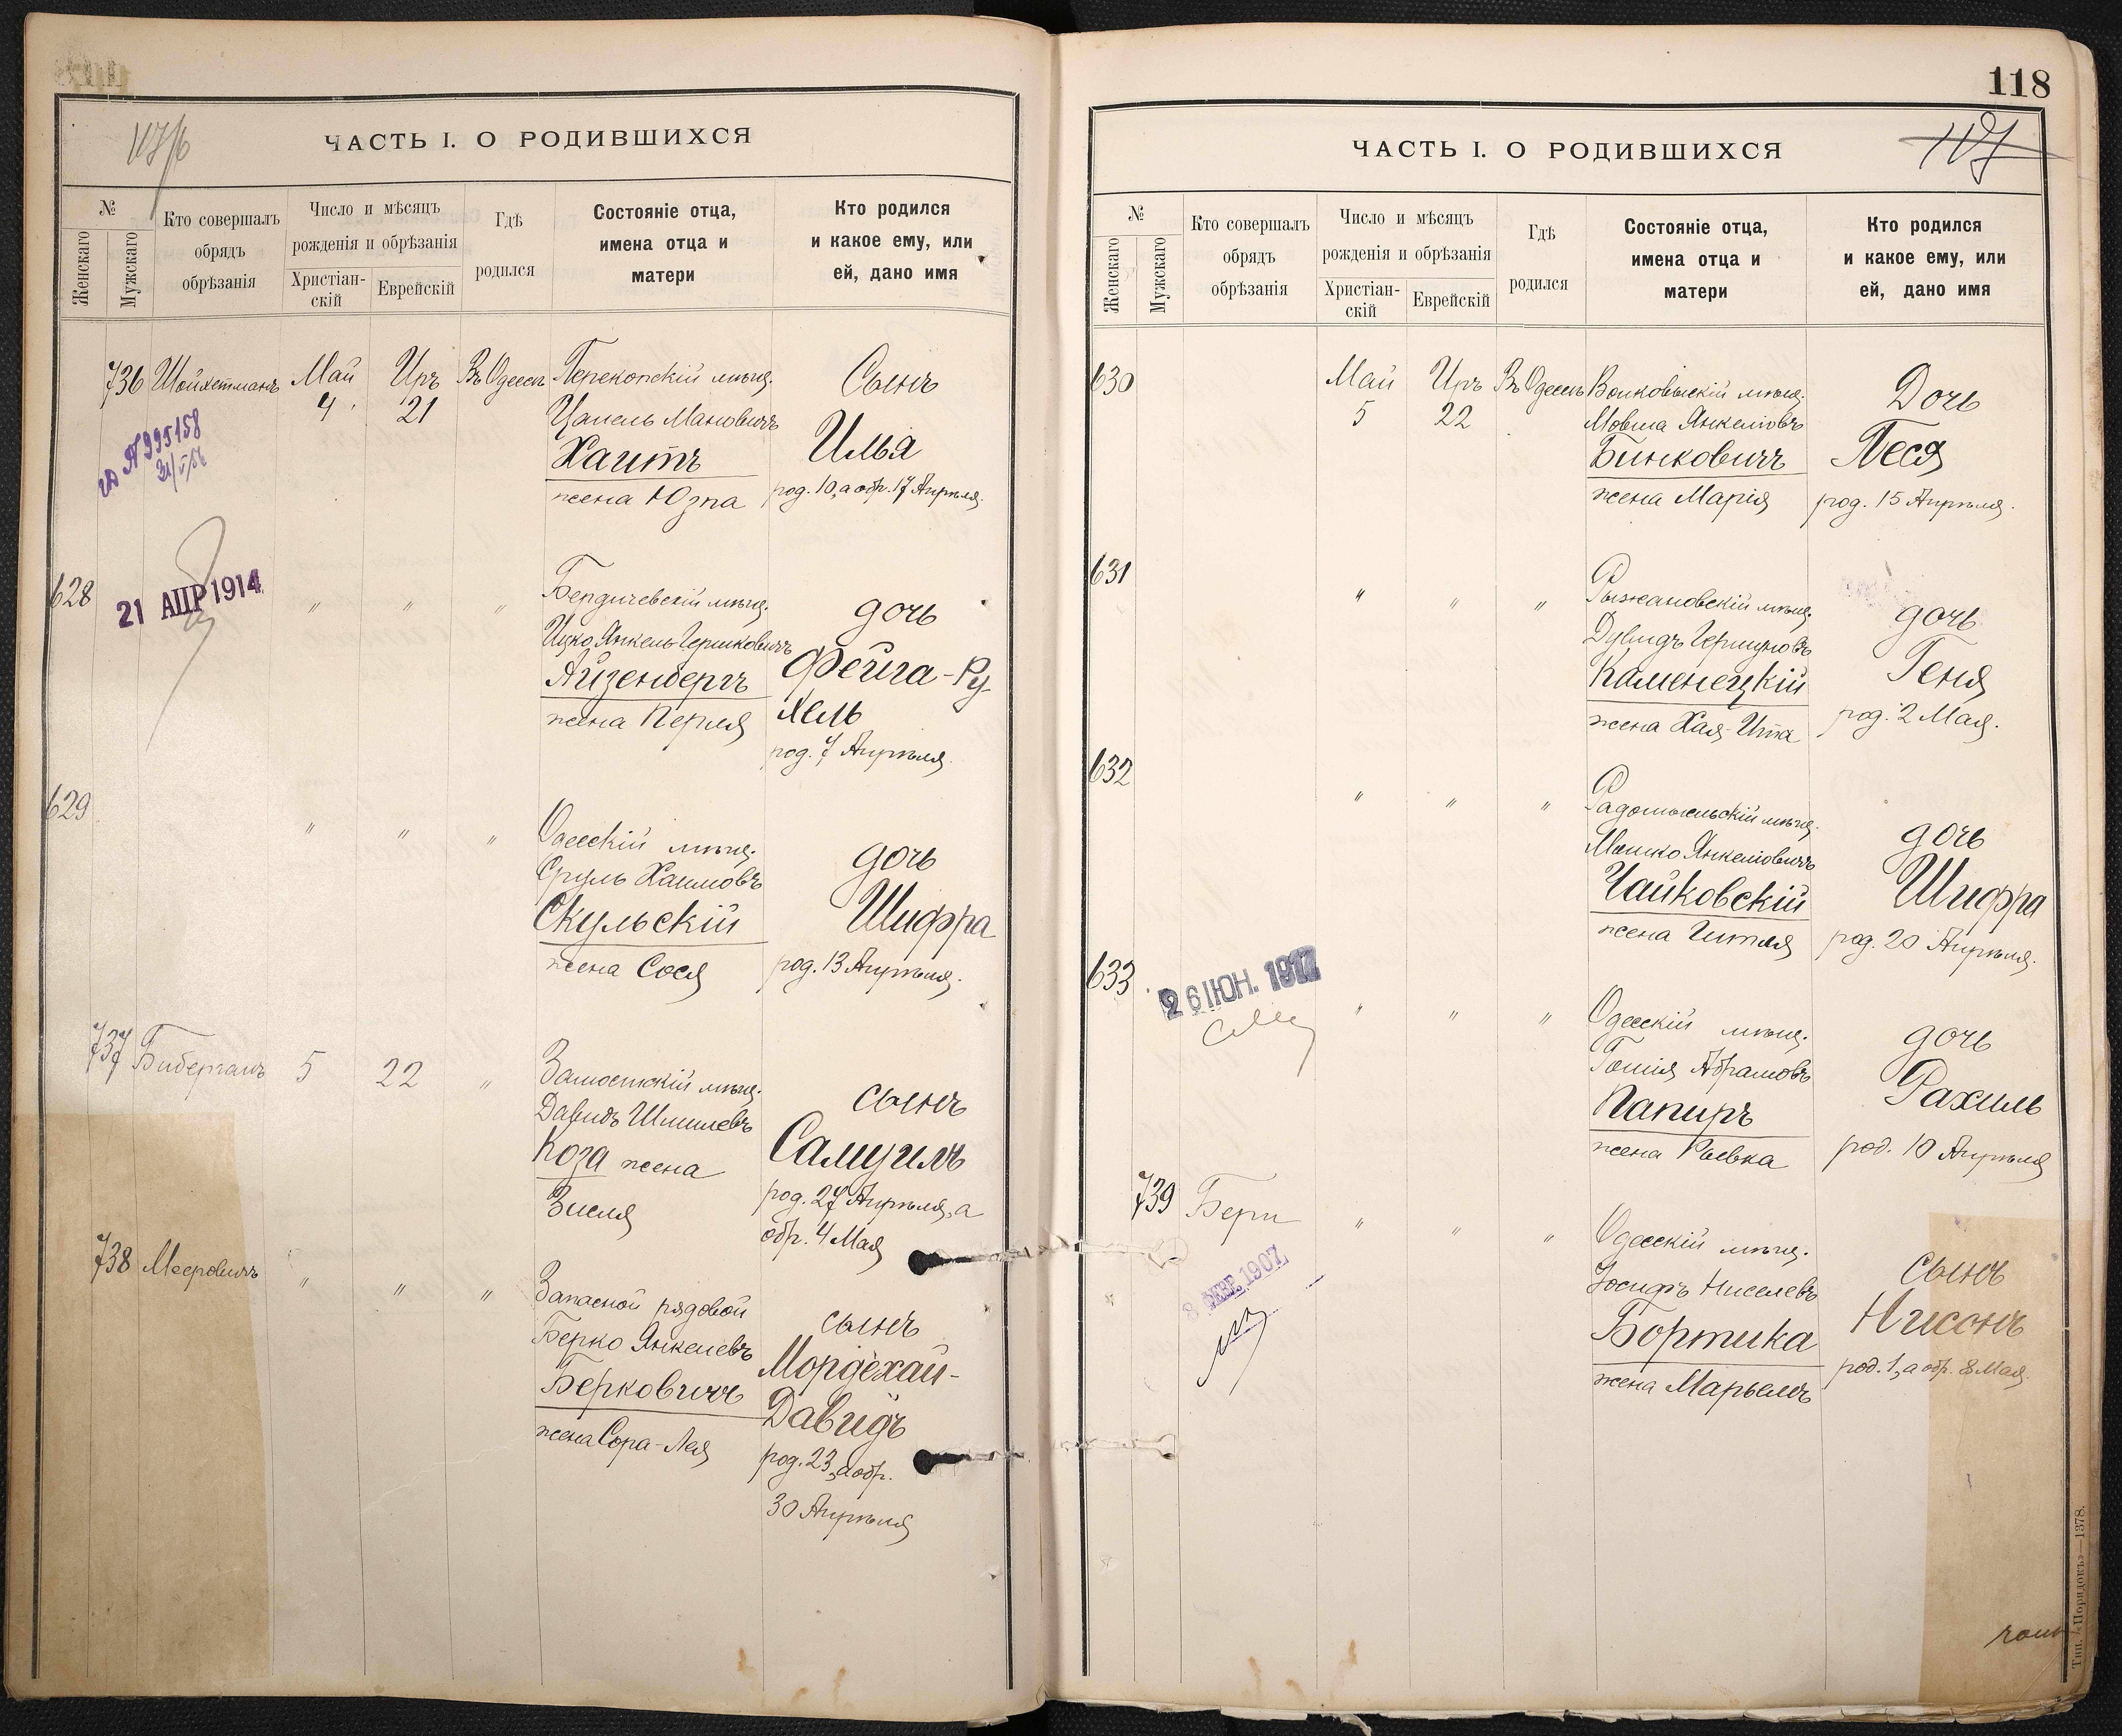 118
117/6
ЧАСТЬ I. О РОДИВШИХСЯ
№
Женскаго
Мужскаго
Кто совершалъ
обрядъ
обрѣзанія
Число и мѣсяцъ
рожденія и обрѣзанія
Христіан-
скій
Еврейскій
Гдѣ
родился
Состояніе отца,
имена отца и
матери
Кто родился
и какое ему, или
ей, дано имя
736 Шойхетманъ Май Иръ Въ Одессѣ Перекопскій мѣщ. Сынъ
4 21 Цапель Мановичъ
Хаитъ Илья
жена Юзпа род. 10, а обр. 17 Апрѣля.
№ 995158
628
21 АПР 1914
" " " Бердичевскій мѣщ. дочь
Ицко Янкель Гершковичъ
Айзенбергъ Фейга-Ру-
жена Перля хель
род. 7 Апрѣля
629
" " " Одесскій мѣщ. дочь
Сруль Хаимовъ
Скульскій Шифра
жена Сося род. 13 Апрѣля.
737 Биберганъ 5 22 " Замостскій мѣщ. сынъ
Давидъ Шмилевъ
Коза жена Самуилъ
Зисля род. 27 Апрѣля, а
обр. 4 Мая
738 Мееровичъ " " " Запасной рядовой сынъ
Берко Янкелевъ Мордехай-
Берковичъ Давидъ
жена Сора-Лея род. 23, а обр.
30 Апрѣля
117
ЧАСТЬ I. О РОДИВШИХСЯ
№
Женскаго
Мужскаго
Кто совершалъ
обрядъ
обрѣзанія
Число и мѣсяцъ
рожденія и обрѣзанія
Христіан-
скій
Еврейскій
Гдѣ
родился
Состояніе отца,
имена отца и
матери
Кто родился
и какое ему, или
ей, дано имя
630 Май Иръ Въ Одессѣ Волковыскій мѣщ. Дочь
5 22 Мовша Янкеліовъ
Бинковичъ Песя
жена Марія род. 15 Апрѣля.
631
" " " Рыжановскій мѣщ. дочь
Дувидъ Гершуновъ
Каменецкій Геня
жена Хая-Ита род. 2 Мая.
632
" " " Радомысльскій мѣщ. дочь
Мошко Янкеліовичъ
Чайковскій Шифра
жена Гитля род. 20 Апрѣля.
633
26 ІЮН. 1917
" " " Одесскій мѣщ. дочь
Гошія Абрамовъ
Папиръ Рахиль
жена Ривка род. 10 Апрѣля
739 Бери " " " Одесскій мѣщ. сынъ
8 ФЕВР. 1907
Іосифъ Ниселевъ Нисонъ
Бортика
жена Марьемъ род. 1, а обр. 8 Мая.
Тип. «Порядокъ»—1378.